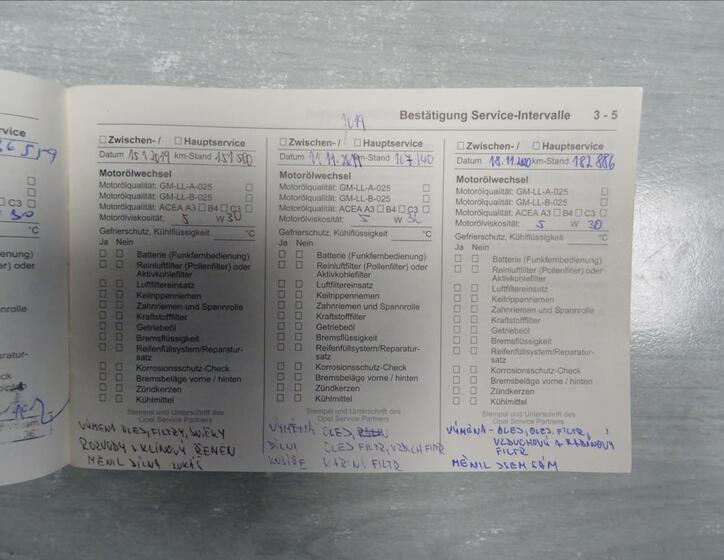 Bestätigung Service-Intervalle 3 - 5
vice
☐ C3 ☐
°C
enung)
er) oder
nrolle
aratur-
☐ Zwischen- / ☐ Hauptservice
Datum 15.1.2019 km-Stand 151 500
Motorölwechsel
Motorölqualität: GM-LL-A-025 ☐
Motorölqualität: GM-LL-B-025 ☐
Motorölqualität: ACEA A3 ☐ B4 ☐ C3 ☐
Motorölviskosität: 5 W 30
Gefrierschutz, Kühlflüssigkeit °C
Ja Nein
☐ ☐ Batterie (Funkfernbedienung)
☐ ☐ Reinluftfilter (Pollenfilter) oder
Aktivkohlefilter
☐ ☐ Luftfiltereinsatz
☐ ☐ Keilrippenriemen
☐ ☐ Zahnriemen und Spannrolle
☐ ☐ Kraftstofffilter
☐ ☐ Getriebeöl
☐ ☐ Bremsflüssigkeit
☐ ☐ Reifenfüllsystem/Reparatur-
satz
☐ ☐ Korrosionsschutz-Check
☐ ☐ Bremsbeläge vorne / hinten
☐ ☐ Zündkerzen
☐ ☐ Kühlmittel
Stempel und Unterschrift des
Opel Service Partners
VÝMĚNA OLEJ, FILTRY, SVÍČKY
ROZVODY + KLÍNOVÝ ŘEMEN
MĚNIL DÍLNA LUKÁŠ
2019
☐ Zwischen- / ☐ Hauptservice
Datum 11.11. km-Stand 167 140
Motorölwechsel
Motorölqualität: GM-LL-A-025 ☐
Motorölqualität: GM-LL-B-025 ☐
Motorölqualität: ACEA A3 ☐ B4 ☐ C3 ☐
Motorölviskosität: 5 W 30
Gefrierschutz, Kühlflüssigkeit °C
Ja Nein
☐ ☐ Batterie (Funkfernbedienung)
☐ ☐ Reinluftfilter (Pollenfilter) oder
Aktivkohlefilter
☐ ☐ Luftfiltereinsatz
☐ ☐ Keilrippenriemen
☐ ☐ Zahnriemen und Spannrolle
☐ ☐ Kraftstofffilter
☐ ☐ Getriebeöl
☐ ☐ Bremsflüssigkeit
☐ ☐ Reifenfüllsystem/Reparatur-
satz
☐ ☐ Korrosionsschutz-Check
☐ ☐ Bremsbeläge vorne / hinten
☐ ☐ Zündkerzen
☐ ☐ Kühlmittel
Stempel und Unterschrift des
Opel Service Partners
VÝMĚNA OLEJ,
DÍLNA OLEJ FILTR, VZDUCH FILTR
KABINÍ FILTR
☐ Zwischen- / ☐ Hauptservice
Datum 18.11.2020 km-Stand 182 886
Motorölwechsel
Motorölqualität: GM-LL-A-025 ☐
Motorölqualität: GM-LL-B-025 ☐
Motorölqualität: ACEA A3 ☐ B4 ☐ C3 ☐
Motorölviskosität: 5 W 30
Gefrierschutz, Kühlflüssigkeit °C
Ja Nein
☐ ☐ Batterie (Funkfernbedienung)
☐ ☐ Reinluftfilter (Pollenfilter) oder
Aktivkohlefilter
☐ ☐ Luftfiltereinsatz
☐ ☐ Keilrippenriemen
☐ ☐ Zahnriemen und Spannrolle
☐ ☐ Kraftstofffilter
☐ ☐ Getriebeöl
☐ ☐ Bremsflüssigkeit
☐ ☐ Reifenfüllsystem/Reparatur-
satz
☐ ☐ Korrosionsschutz-Check
☐ ☐ Bremsbeläge vorne / hinten
☐ ☐ Zündkerzen
☐ ☐ Kühlmittel
Stempel und Unterschrift des
Opel Service Partners
VÝMĚNA - OLEJ, OLEJ. FILTR,
VZDUCHOVÝ + KABINOVÝ
FILTR
MĚNIL JSEM SÁM